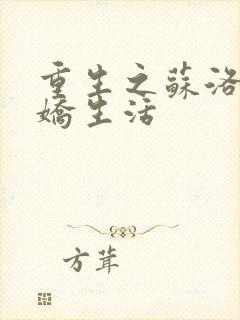 重生之蘇洛
嬌生活
方茸